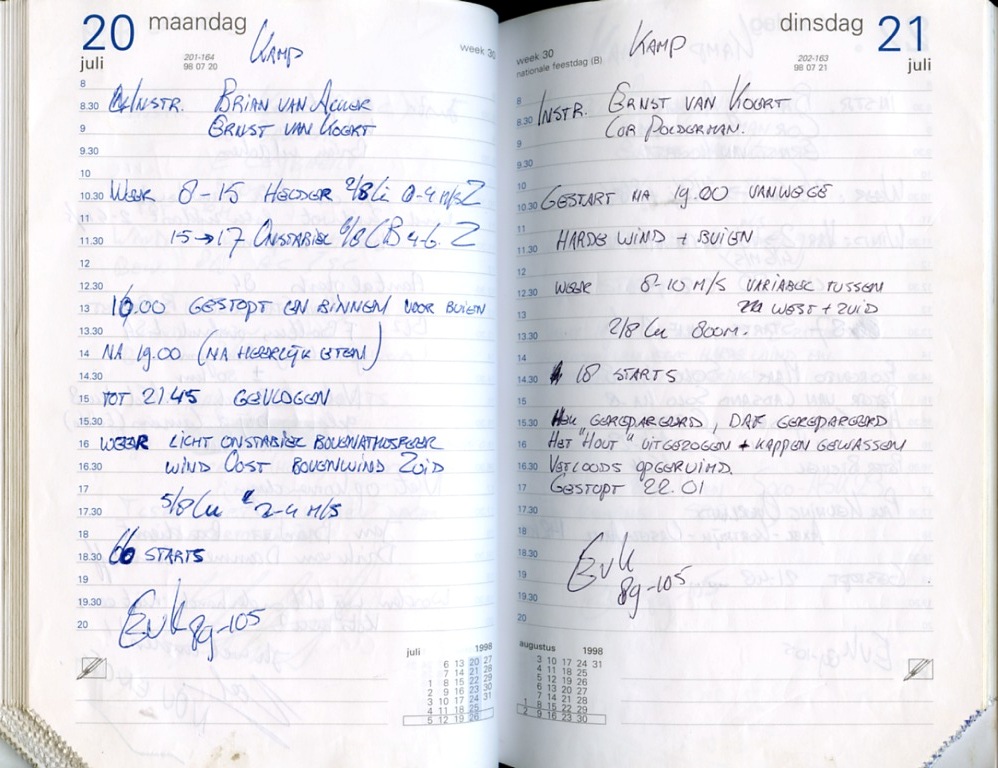 20 maandag
juli
201-164
98 07 20
week 30
KAMP
8
8.30 INSTR. BRIAN VAN ACKER
9 ERNST VAN KOERT
9.30
10
10.30 WEER 8-15 HELDER 2/8 Ci 0-4 M/S Z
11
11.30 15→17 ONSTABIEL 6/8 CB 4-6. Z
12
12.30
13 16.00 GESTOPT EN BINNEN VOOR BUIEN
13.30
14 NA 19.00 (NA HEERLIJK ETEN)
14.30
15 TOT 21.45 GEVLOGEN
15.30
16 WEER LICHT ONSTABIEL BOVENATMOSFEER
16.30 WIND OOST BOVENWIND ZUID
17
17.30 5/8 Cu 2-4 M/S
18
18.30 66 STARTS
19
19.30 EvK 89-105
20
juli 1998
6 13 20 27
7 14 21 28
1 8 15 22 29
2 9 16 23 30
3 10 17 24 31
4 11 18 25
5 12 19 26
dinsdag 21
juli
week 30
nationale feestdag (B)
202-163
98 07 21
KAMP
8
8.30 INSTR. ERNST VAN KOERT
9 COR POLDERMAN.
9.30
10
10.30 GESTART NA 19.00 VANWEGE
11
11.30 HARDE WIND + BUIEN
12
12.30 WEER 8-10 M/S VARIABEL TUSSEN
13 WEST + ZUID
13.30 2/8 Cu 800M.
14
14.30 18 STARTS
15
15.30 GEREPAREERD, DAF GEREPAREERD
16 HET "HOUT" UITGEZOGEN + KAPPEN GEWASSEN
16.30 VELLOODS OPGERUIMD.
17 GESTOPT 22.01
17.30
18
18.30 EvK
19 89-105
19.30
20
augustus 1998
3 10 17 24 31
4 11 18 25
5 12 19 26
6 13 20 27
7 14 21 28
1 8 15 22 29
2 9 16 23 30